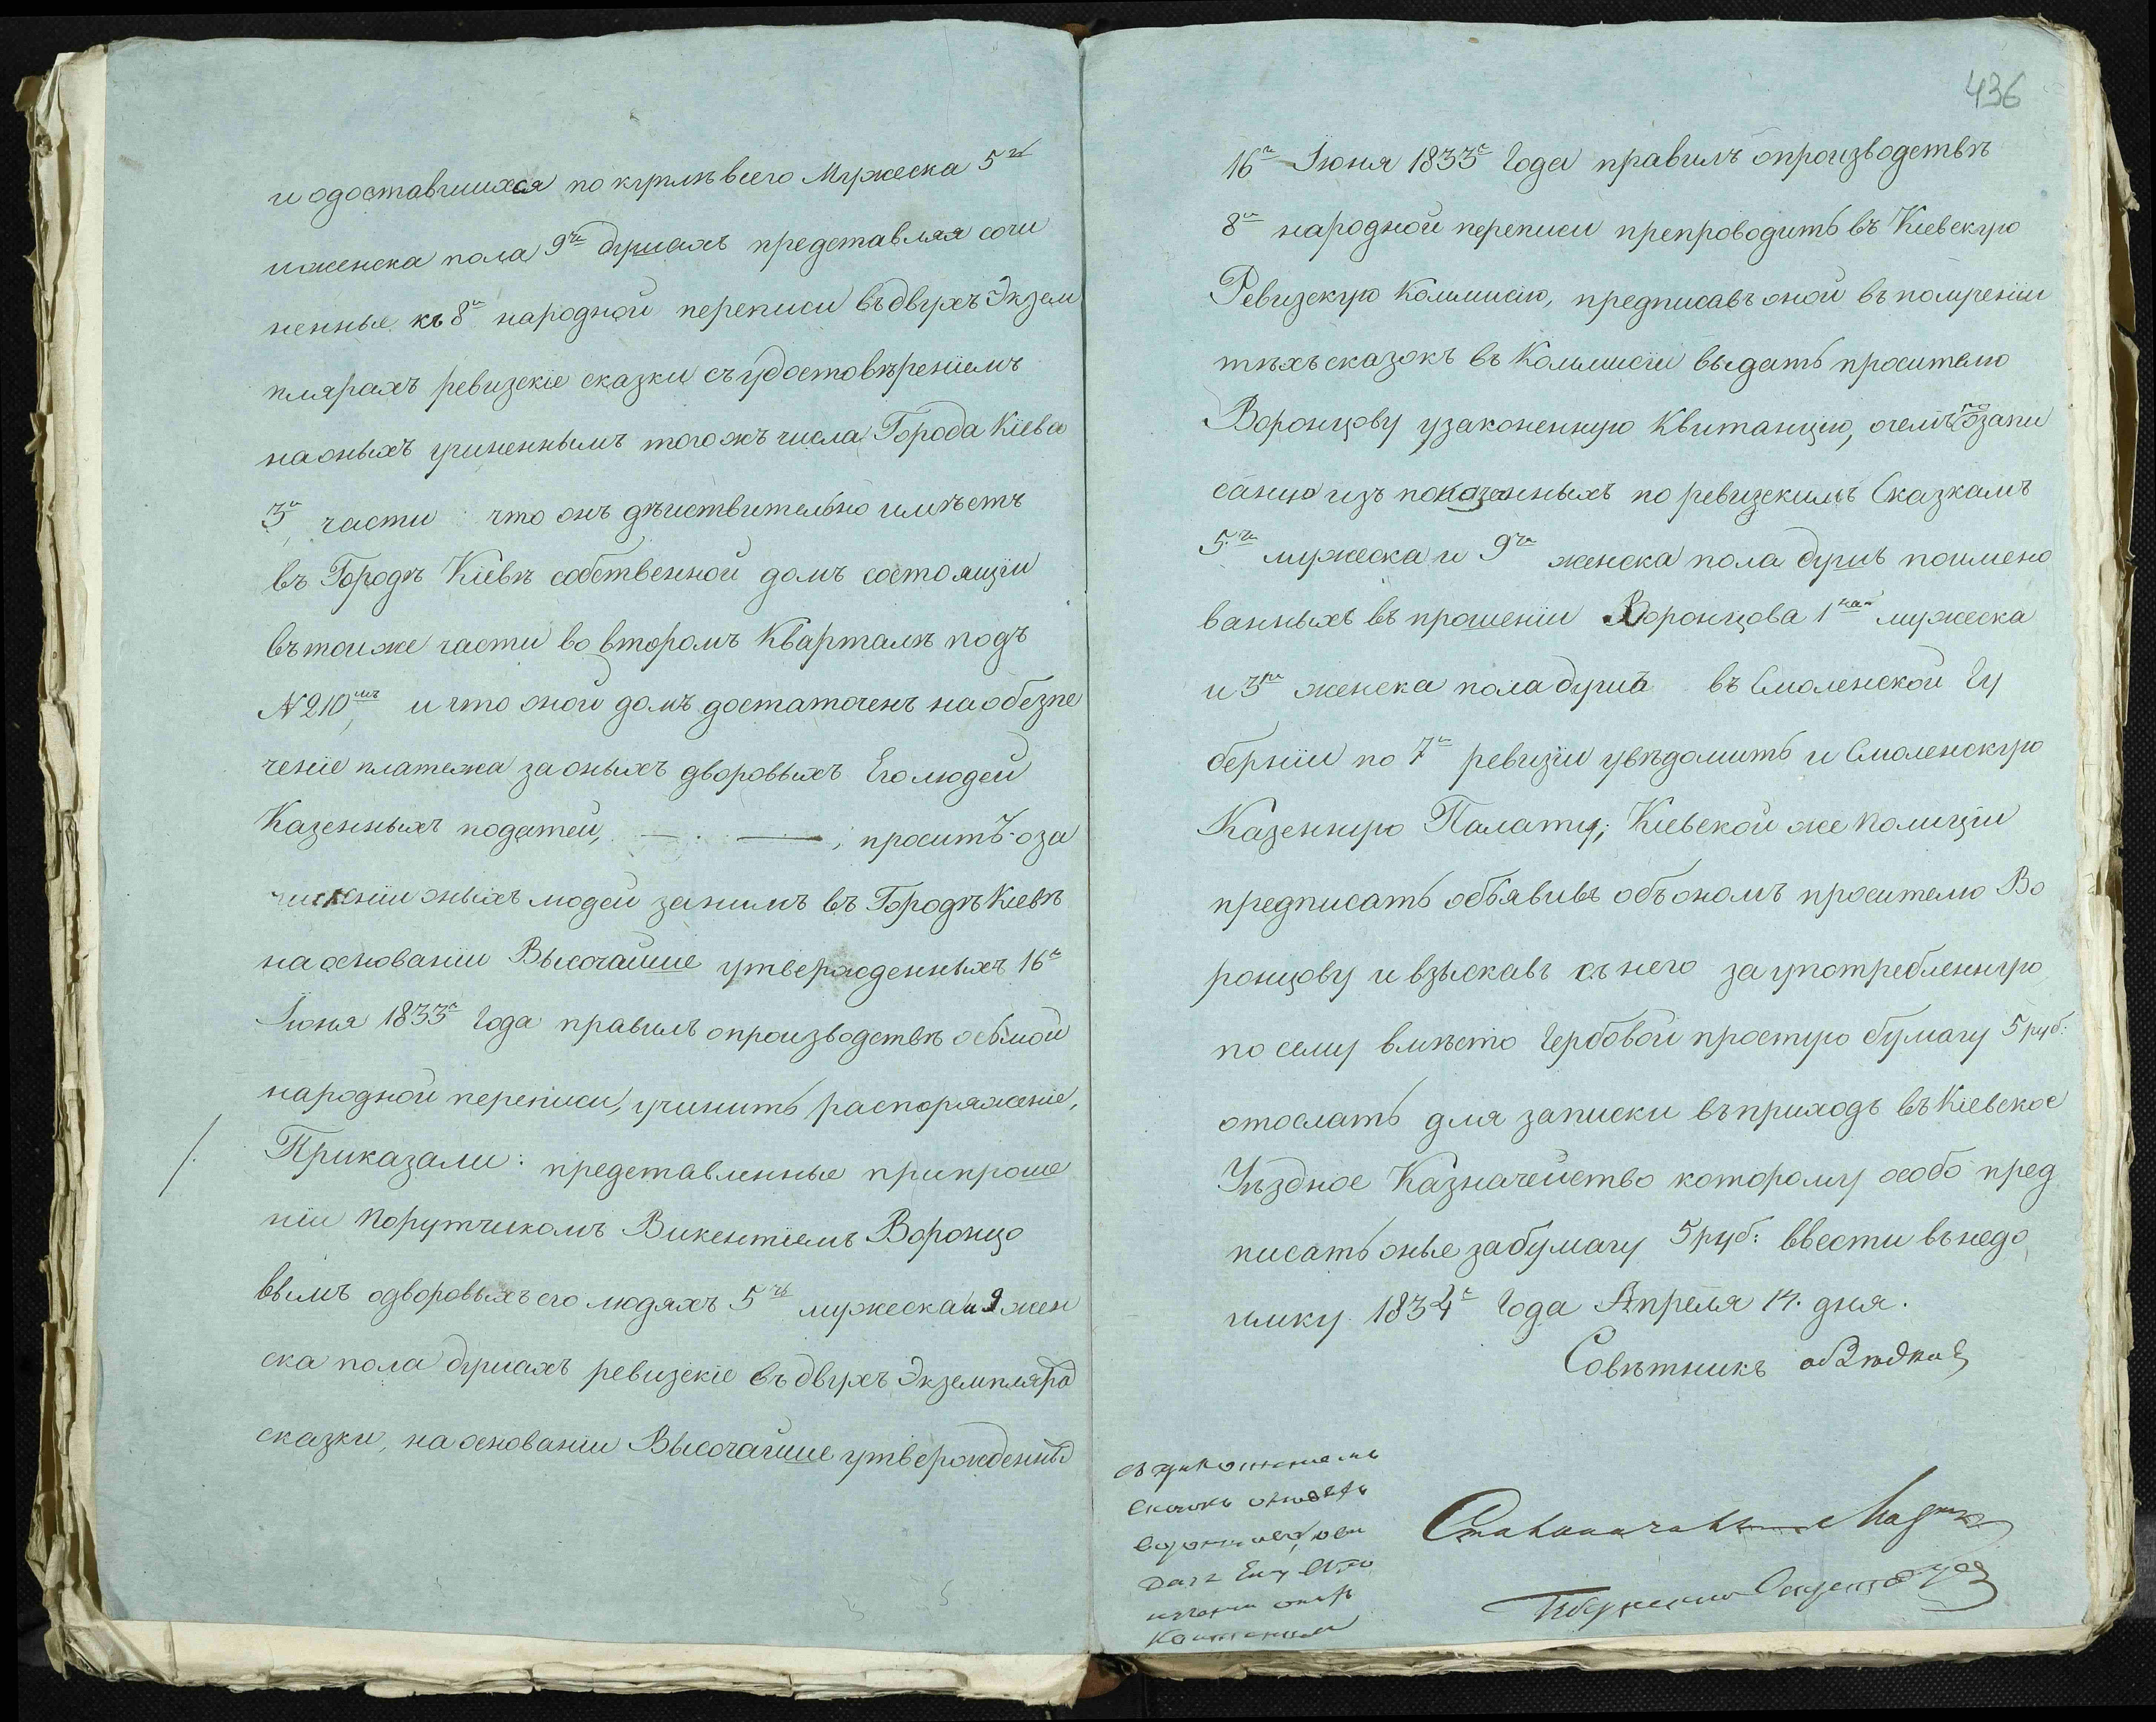 и одоставшихся покуплѣ всего Мужеска 5ти
иженска пола 9ти душахъ представляя сочи
ненные къ 8й народной переписи въ двухъ Экзем
плярахъ ревизскіе сказки съ удостовѣреніемъ
на оныхъ учиненнымъ тогожъ числа Города Кіева
3й части что онъ дѣиствительно имѣетъ
въ Городѣ Кіевѣ собственной домъ состоящіи
въ тоиже части во второмъ Кварталѣ подъ
№ 210мъ и что оной домъ достаточенъ на обезпе
ченіе платежа за оныхъ дворовыхъ Его людей
Казенныхъ податей, — . — ; проситъ оза
численіи оныхъ людей за нимъ въ Городѣ Кіевѣ
на основаніи Высочайше утвержденныхъ 16г
Іюня 1833г Года правилъ опроизводствѣ осьмой
народной переписи, учинить распоряженіе,
Приказали: представленные припроше
ніи Порутчикомъ Викентіемъ Воронцо
вымъ одворовыхъ его людяхъ 5ти мужеска и 9 жен
ска пола душахъ ревизскіе въ двухъ Экземпляра
сказки, на основаніи Высочайше утвержденны
436
16г Іюня 1833г Года правилъ опроизводствѣ
8й народной переписи препроводить въ Кіевскую
Ревизскую Коммисію, предписавъ оной въ
тѣхъ сказокъ въ Коммисіи выдать просителю
Воронцову узаконенную Квитанцію, очемъ по запи
санію изъ показанныхъ по ревизскимъ Сказкамъ
5ти мужеска и 9ти женска пола душъ поимено
ванныхъ въ прошеніи Воронцова 1на мужеска
и 3ри женска пола душъ въ Смоленской Гу
берніи по 7й ревизіи увѣдомить и Смоленскую
Казенную Палату; Кіевской же Полиціи
предписать объявивъ объ ономъ просителю Во
ронцову и взыскавъ съ него за употребленную
по сему вмѣсто Гербовой простую бумагу 5 руб:
отослать для записки въ приходъ въ Кіевское
Уѣздное Казначейство которому особо пред
писать оные за бумагу 5 руб: ввести въ недо
имку 1834г Года Апреля 14. дня.
Совѣтникъ